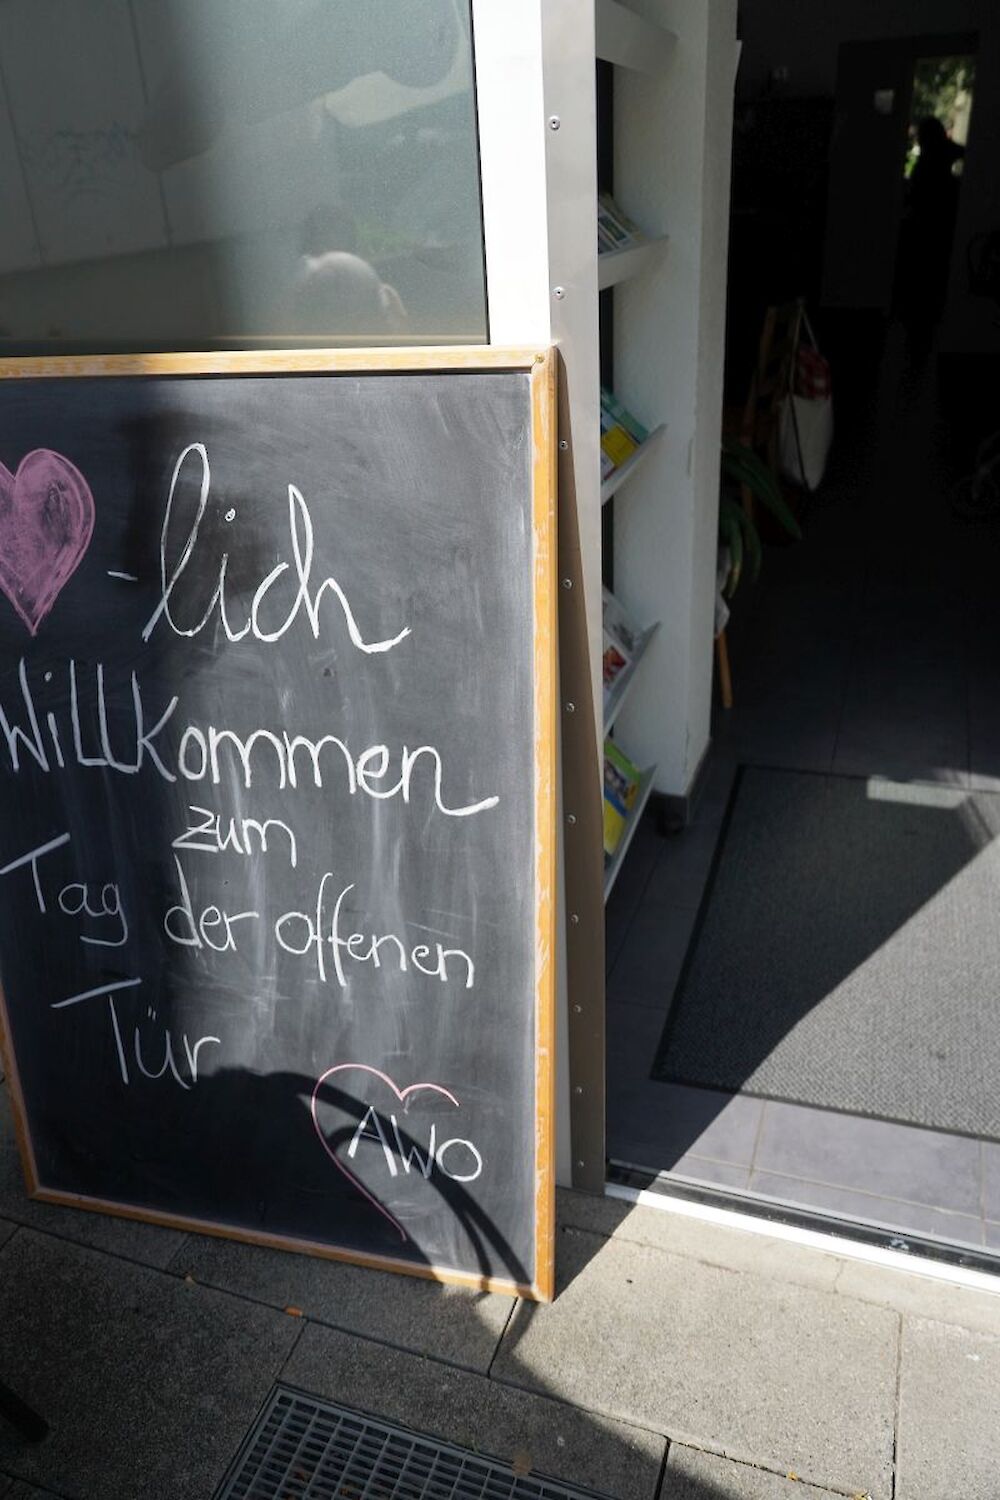 -lich
Willkommen
zum
Tag der offenen
Tür
AWO